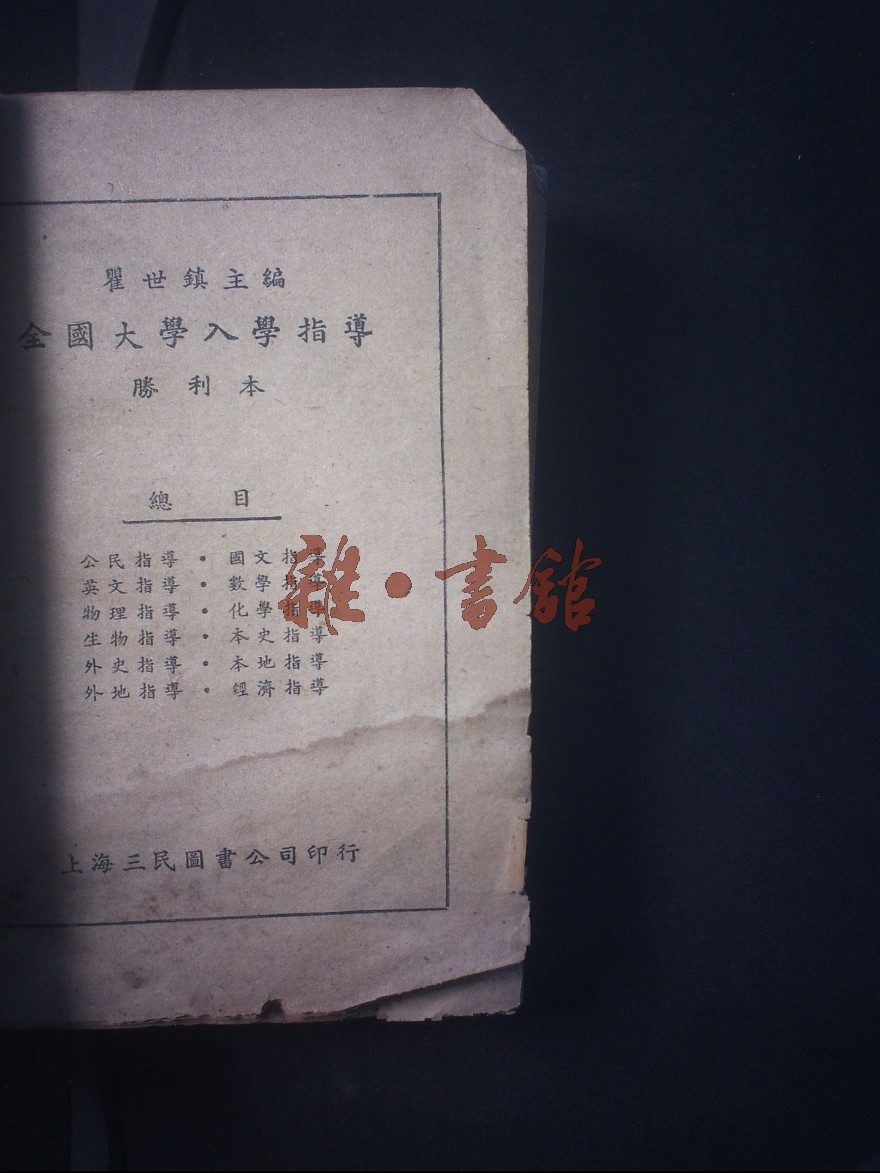 瞿世鎮主編
全國大學入學指導
勝利本
總目
公民指導・國文指導
英文指導・數學指導
物理指導・化學指導
生物指導・本史指導
外史指導・本地指導
外地指導・經濟指導
雜・書館
上海三民圖書公司印行